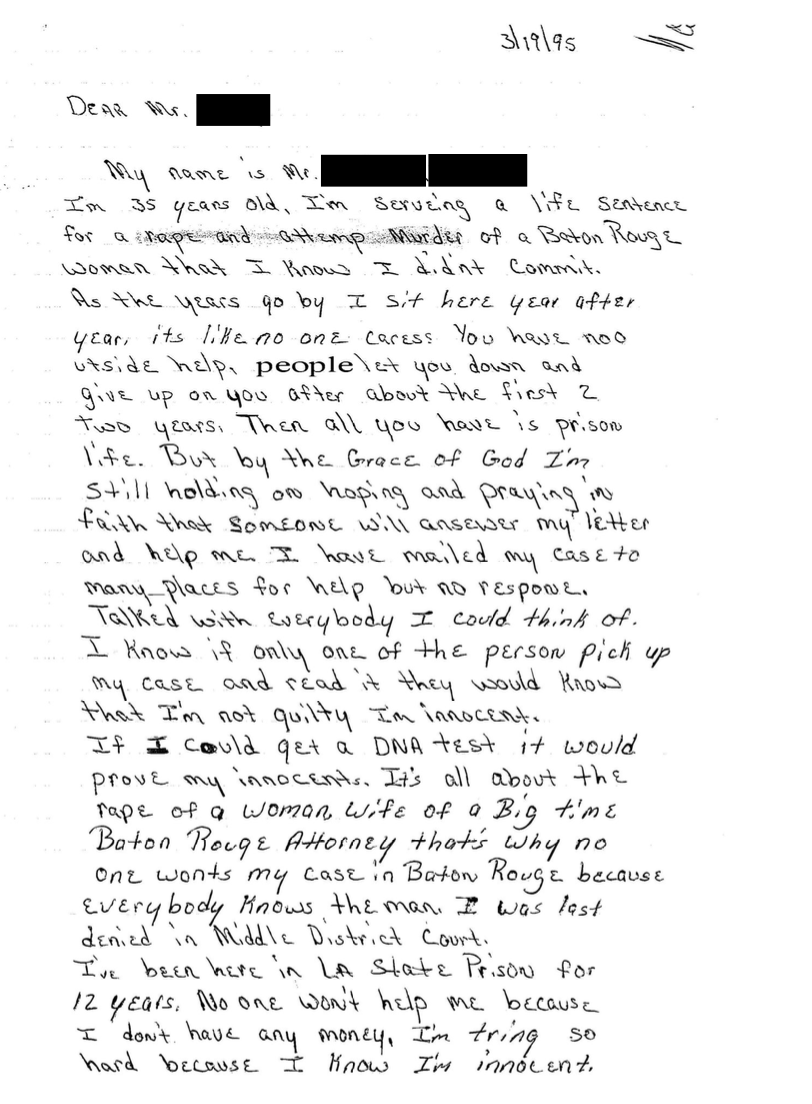 3/19/95
DEAR Mr.
My name is Mr.
I'm 35 years old, I'm serveing a life sentence
for a rape and attemp Murder of a Baton Rouge
woman that I know I didnt commit.
As the years go by I sit here year after
year, its like no one caress You have noo
utside help, people let you down and
give up on you after about the first 2
two years. Then all you have is prison
life. But by the Grace of God I'm
still holding on hoping and praying in
faith that someone will ansewer my letter
and help me. I have mailed my case to
many places for help but no respone.
Talked with everybody I could think of.
I know if only one of the person pick up
my case and read it they would know
that I'm not guilty I'm innocent.
If I could get a DNA test it would
prove my innocents. It's all about the
rape of a woman, wife of a Big time
Baton Rouge Attorney that's why no
one wonts my case in Baton Rouge because
everybody knows the man. I was last
denied in Middle District Court.
I've been here in LA State Prison for
12 years. No one won't help me because
I don't have any money, I'm tring so
hard because I know I'm innocent.